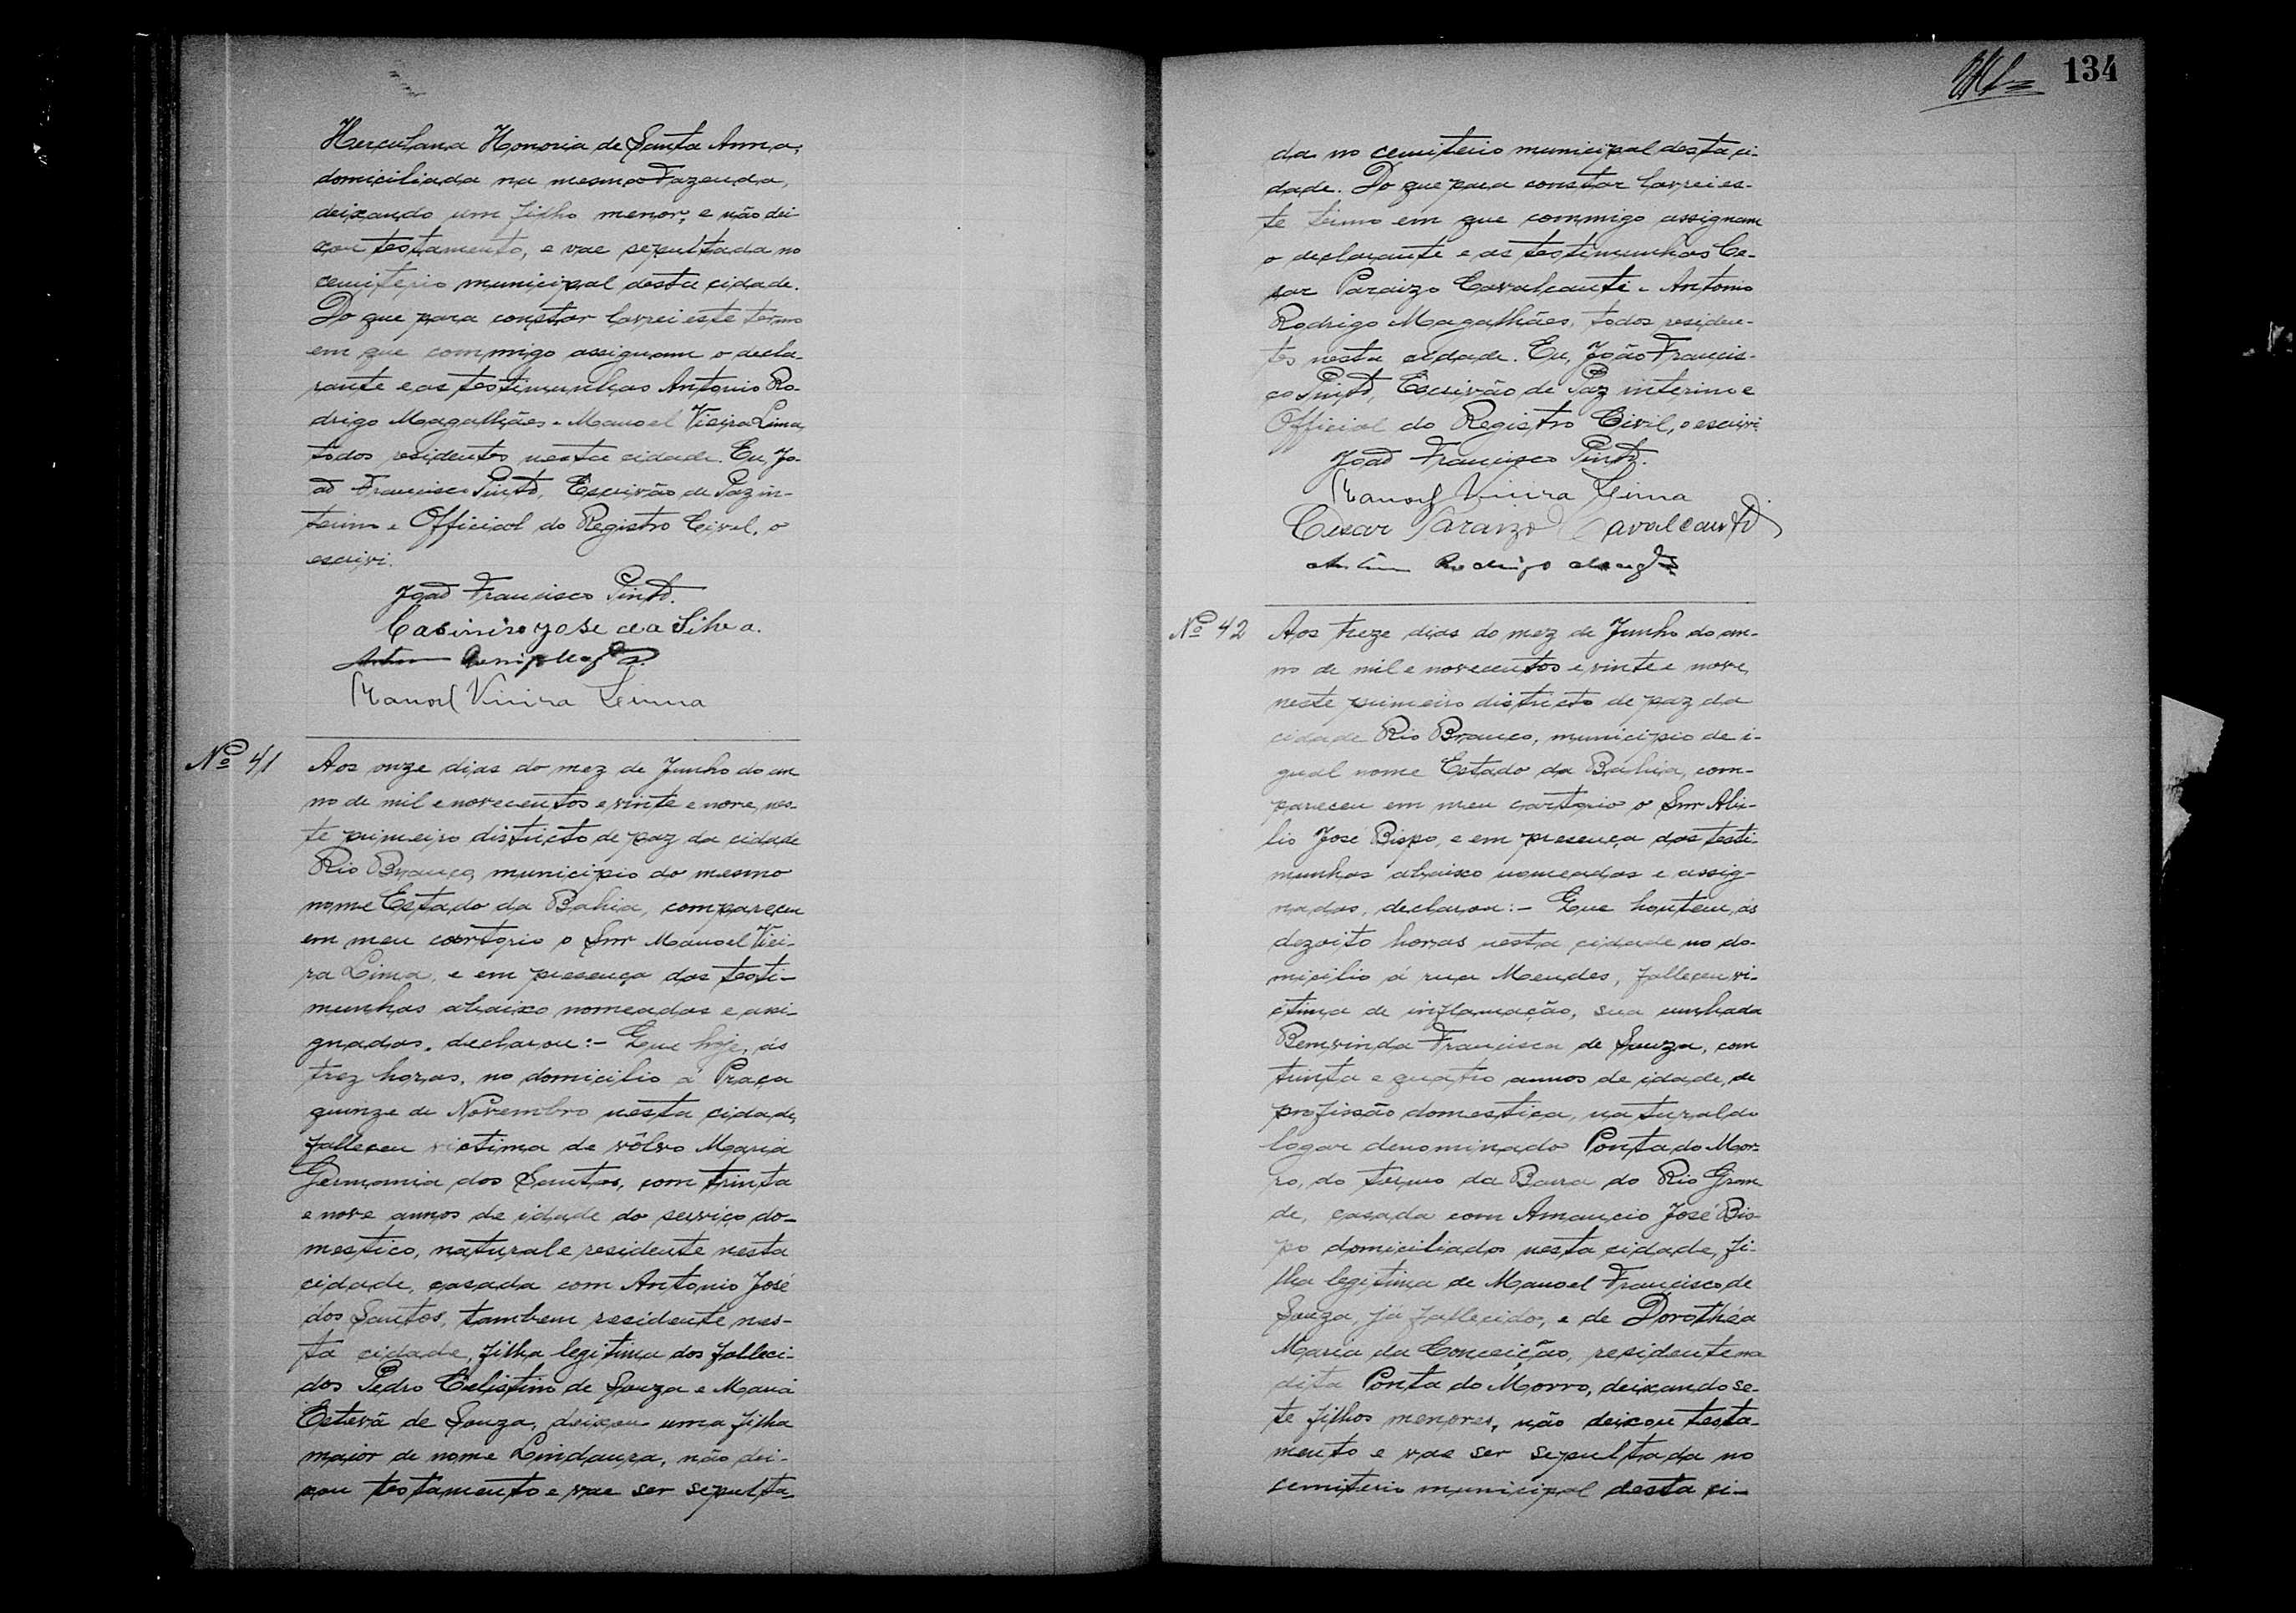 Herculana Honoria de Santa Anna,
domiciliada na mesma Fazenda,
deixando um filho menor, e não dei-
xou testamento, e vae sepultada no
cemiterio municipal desta cidade.
Do que para constar lavrei este termo
em que commigo assignam o decla-
rante e as testimunhas Antonio Ro-
drigo Magalhães e Manoel Vieira Lima,
todos residentes nesta cidade. Eu, Jo-
ão Francisco Pinto, Escrivão de Paz in-
terino e Official do Registro Civil, o
escrivi.
João Francisco Pinto.
Casimiro Jose da Silva.
Manoel Vieira Leima
Nº 41
Aos onze dias do mez de Junho do an
no de mil e novecentos e vinte e nove, nes-
te primeiro districto de paz da cidade
Rio Branco, municipio do mesmo
nome Estado da Bahia, compareceu
em meu cartorio o Snr Manoel Viei-
ra Lima, e em presença das testi-
munhas abaixo nomeadas e assi-
gnadas, declarou:- Que hoje, ás
trez horas, no domicilio á Praça
quinze de Novembro nesta cidade,
falleceu victima de vôlvo Maria
Germania dos Santos, com trinta
e nove annos de idade do serviço do-
mestico, natural e residente nesta
cidade, casada com Antonio José
dos Santos, tambem residente nes-
ta cidade, filha legitima dos falleci-
dos Pedro Celistino de Souza e Maria
Estevã de Souza, deixou uma filha
maior de nome Lindaura, não dei-
xou testamento e vae ser sepulta-
134
da no cemiterio municipal desta ci-
dade. Do que para constar lavrei es-
te termo em que commigo assignam
o declarante e as testimunhas Ce-
sar Paraizo Cavalcante e Antonio
Rodrigo Magalhães, todos residen-
tes nesta cidade. Eu, João Francis-
co Pinto, Escrivão de Paz interino e
Official do Registro Civil, o escrivi.
João Francisco Pinto.
Manoel Vieira Leima
Cesar Paraizo Cavalcanti
Rodrigo
Nº 42
Aos treze dias do mez de Junho do an-
no de mil e novecentos e vinte e nove,
neste primeiro districto de paz da
cidade Rio Branco, municipio de i-
gual nome Estado da Bahia, com-
pareceu em meu cartorio o Snr Abi-
lio José Bispo, e em presença das testi-
munhas abaixo nomeadas e assig-
nadas, declarou:- Que hontem, ás
dezoito horas nesta cidade no do-
micilio á rua Mendes, falleceu vi-
ctima de inflamação, sua cunhada
Bemvinda Francisca de Souza, com
trinta e quatro annos de idade, de
profissão domestica, natural do
logar denominado Ponta do Mor-
ro, do termo da Barra do Rio Gran
de, casada com Amancio José Bis-
po domiciliados nesta cidade, fi-
lha legitima de Manoel Francisco de
Souza, já fallecido, e de Dorothéa
Maria da Conceição, residente na
dita Ponta do Morro, deixando se-
te filhos menores, não deixou testa-
mento e vae ser sepultada no
cemiterio municipal desta ci-